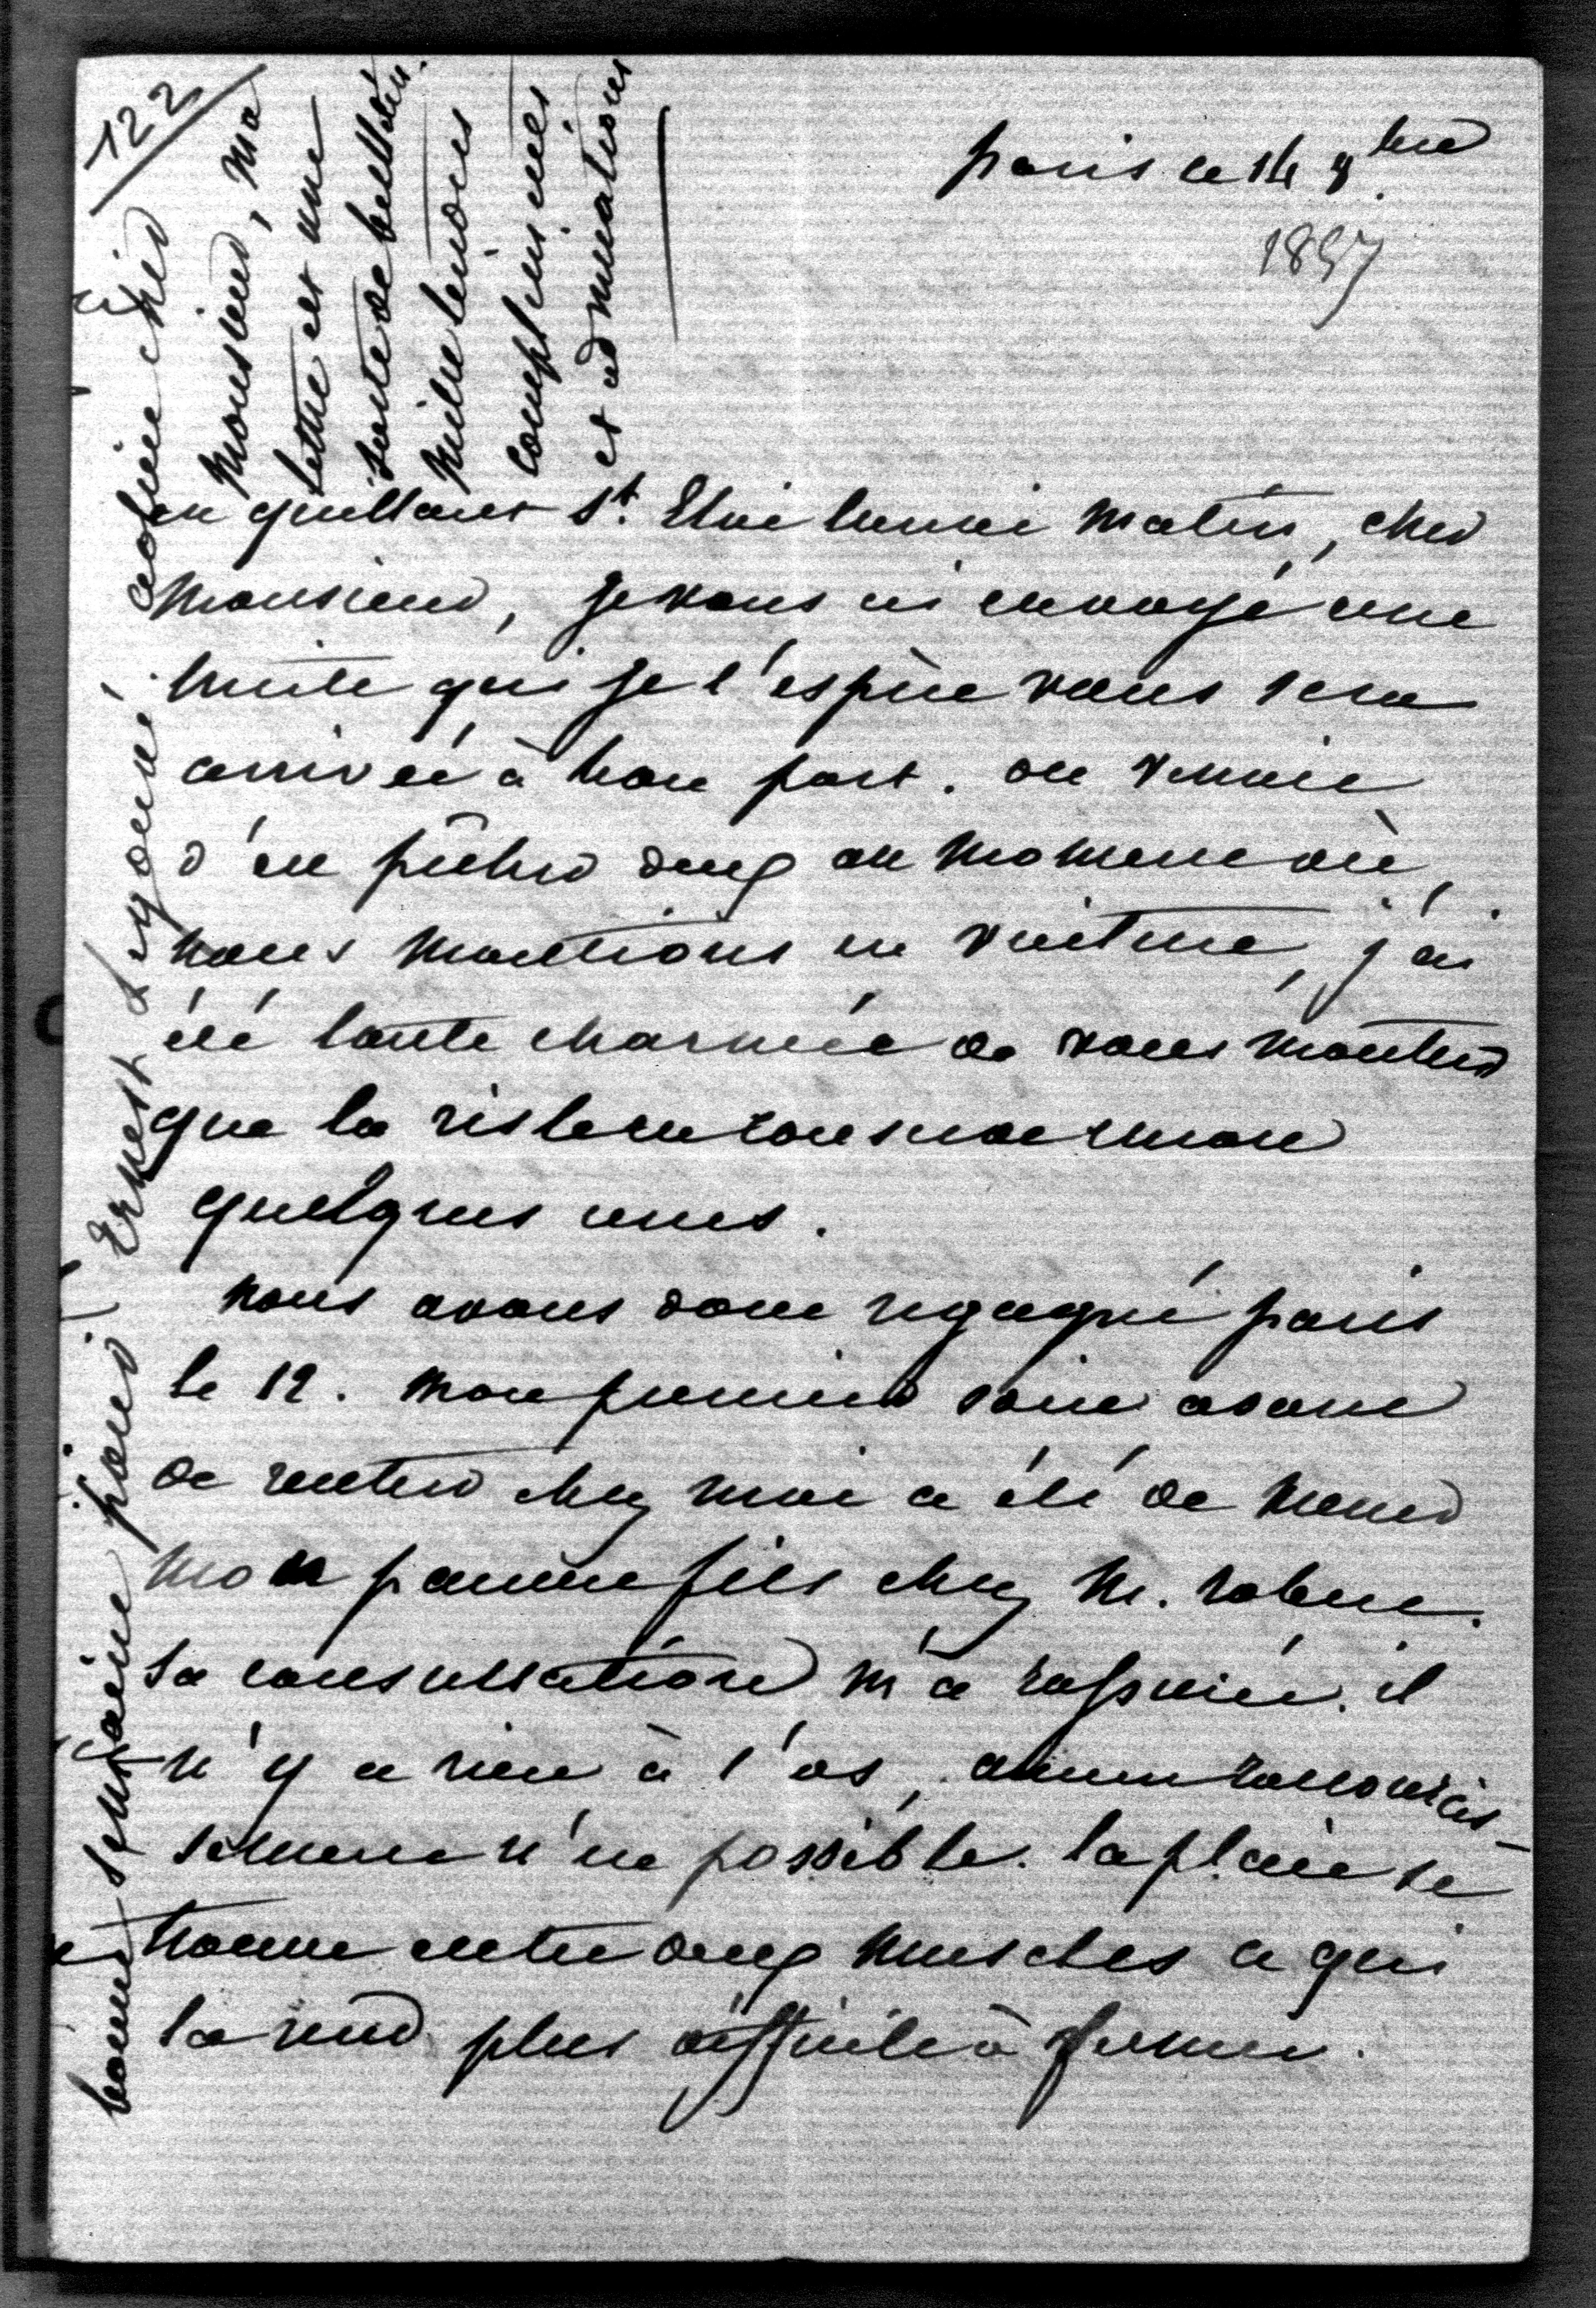 122
paris ce 14 8bre
1857
en quittant St. Eloi lundi matin, cher
Monsieur, je vous ai envoyé une
truite qui je l'espère vous sera
arrivée à bon port. on venait
d'en pêcher deux au moment où,
nous montions en voiture, j'ai
été toute charmée de vous montrer
que la risle en
quelques unes.
nous avons donc regagné paris
le 12. mon premier soin avant
de rentrer chez moi a été de mener
mon pauvre fils chez M.
sa consultation m'a rassurée. il
n'y a rien à l'os, aucun raccourcis-
sement n'est possible. la plaie se
trouve entre deux muscles ce qui
la rend plus difficile à fermer.
bonne semaine pour Ernest Legouvé.
adieu cher
Monsieur, ma
lettre est une
sorte de bulletin.
Mille tendres
complimens
et admirations